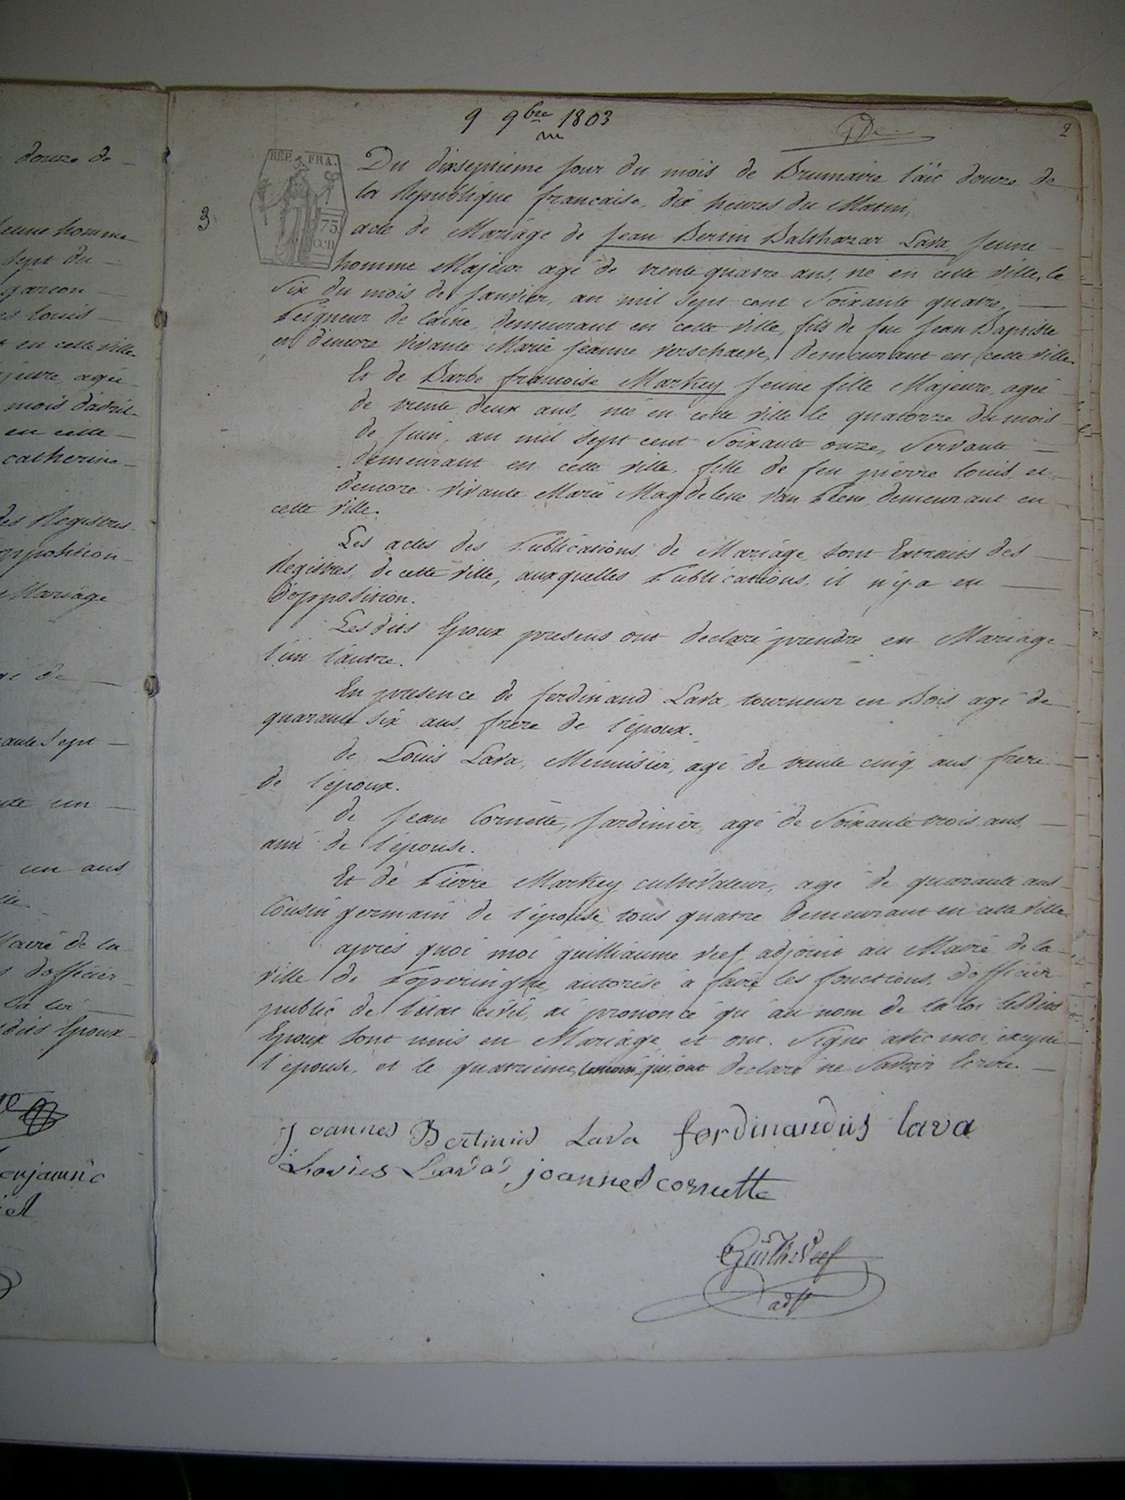 douze de
jeune homme
Sept du
garcon
es louis
en cette ville
agée
mois d'avril
en cette
catherine
des Registres
opposition
Mariage
de
ante Sept
un
un ans
Maire de la
d'officier
La loi
dits Epoux
9 9bre 1803
2
REP. FRA.
75
3
Du dixseptieme Jour du mois de Brumaire l'an douze de
la Republique francaise, dix heures du Matin,
acte de Mariage de Jean Bertin Balthazar Lava, Jeune
homme Majeur agé de trente quatre ans, né en cette ville, le
Six du mois de Janvier, an mil Sept cent Soixante quatre,
Peigneur de laine, demeurant en cette ville, fils de feu Jean Baptiste
et d'encore vivante Marie Jeanne Verschaeve, demeurant en cette ville.
Et de Barbe francoise Markey Jeune fille Majeure, agée
de trente deux ans, née en cette ville le quatorze du mois
de Juin, an mil Sept cent Soixante onze, Servante
demeurant en cette ville, fille de feu pierre louis, et
d'encore vivante Marie Magdelene Van demeurant en
cette Ville.
Les actes des Publications de Mariage, sont Extraits des
Registres, de cette ville, auxquelles Publications, il n'y a eu
d'opposition.
Lesdits Epoux presens ont declaré prendre en Mariage
l'un l'autre.
En presence de ferdinand Lava, tourneur en Bois agé de
quarante six ans, frere de l'époux.
de Louis Lava, Menuisier, agé de trente cinq ans frere
de l'époux.
de Jean Cornette, Jardinier, agé de Soixante trois ans,
ami de l'épouse.
Et de Pierre Markey cultivateur, agé de quarante ans
Cousin germain de l'épouse, tous quatre demeurant en cette ville
après quoi moi guilliaume Veef adjoint au Maire de la
ville de Poperinghe, autorisé à faire les fonctions, d'officier
public de l'état civil, ai prononcé qu'au nom de la loi lesdits
Epoux sont unis en Mariage, et ont Signé avec moi, excepté
l'épouse, et le quatrieme temoin, qui ont declaré ne Savoir Ecrire.
Joannes Bertinus Lava ferdinandus lava
Lovies Lava joannes cornette
Guilh. Veef
adjt